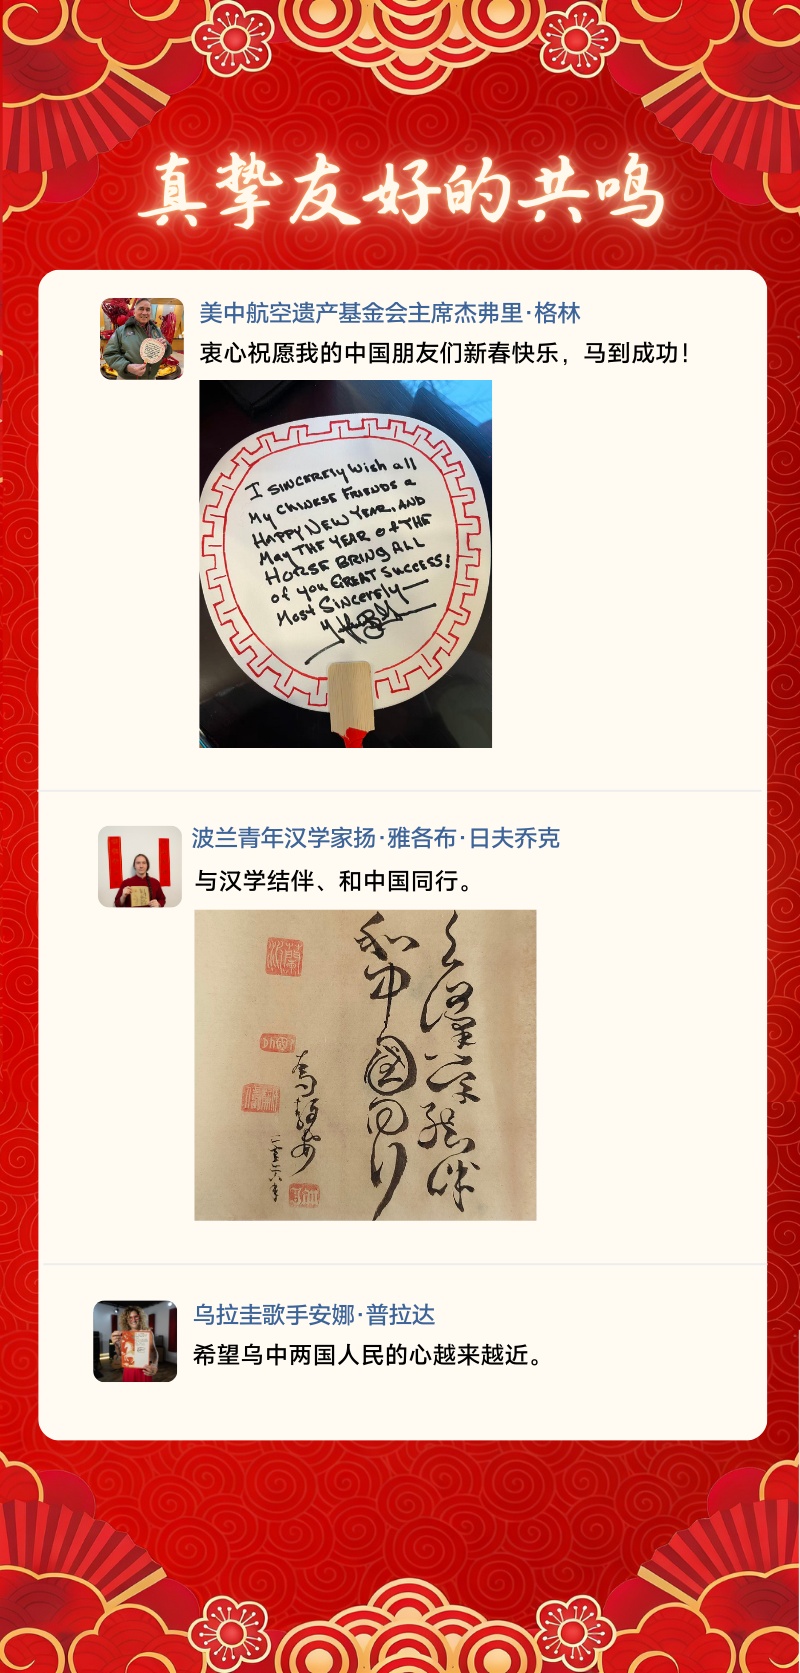 真挚友好的共鸣
美中航空遗产基金会主席杰弗里·格林
衷心祝愿我的中国朋友们新春快乐，马到成功！
I SINCERELY WISH all
My CHINESE FRIENDS a
HAPPY NEW YEAR, AND
May THE YEAR of THE
HORSE BRING ALL
of you GREAT SUCCESS!
Most Sincerely—
波兰青年汉学家扬·雅各布·日夫乔克
与汉学结伴、和中国同行。
与漢学結伴
和中國同行
乌拉圭歌手安娜·普拉达
希望乌中两国人民的心越来越近。